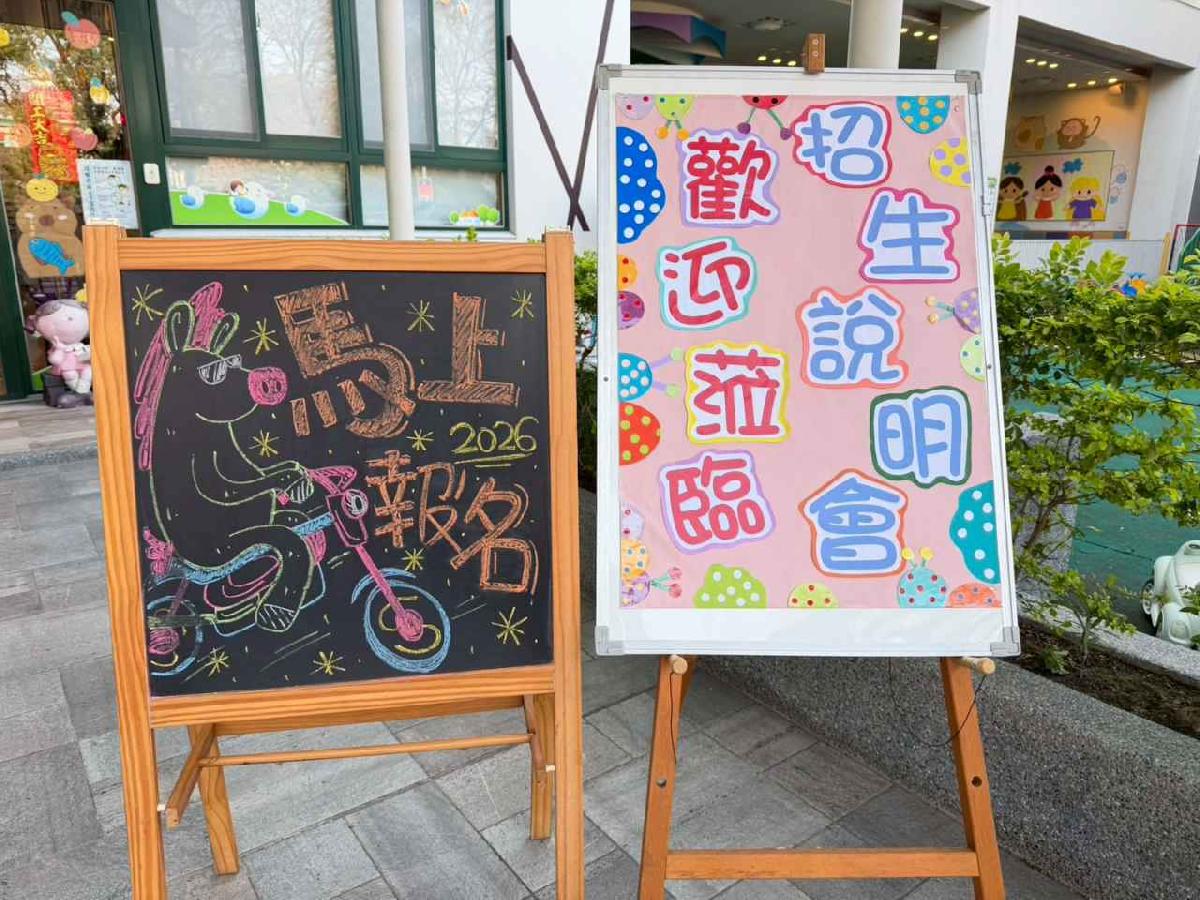 馬上
2026
報名
歡迎蒞臨
招生說明會